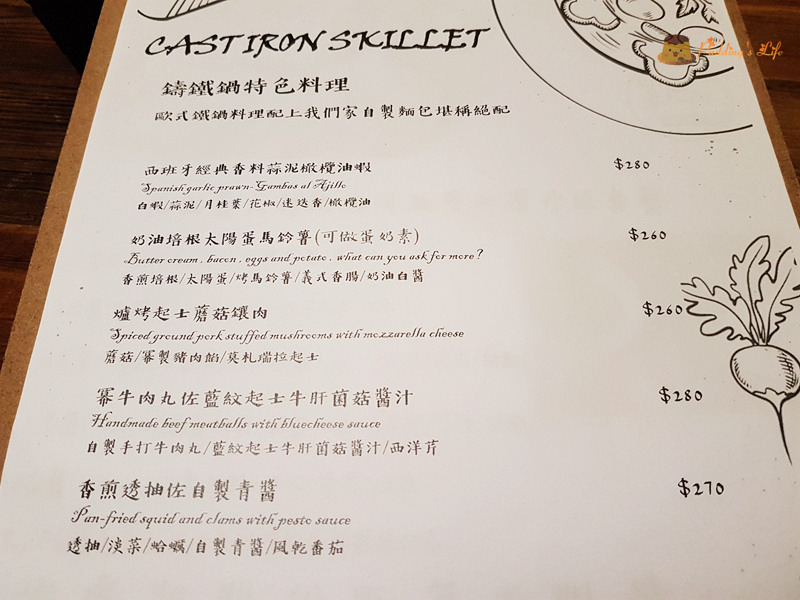 Pudding's Life
CAST IRON SKILLET
鑄鐵鍋特色料理
歐式鐵鍋料理配上我們家自製麵包堪稱絕配
西班牙經典香料蒜泥橄欖油蝦 $280
Spanish garlic prawn-Gambas al Ajillo
白蝦/蒜泥/月桂葉/花椒/迷迭香/橄欖油
奶油培根太陽蛋馬鈴薯(可做蛋奶素) $260
Butter cream, bacon, eggs and potato, what can you ask for more?
香煎培根/太陽蛋/烤馬鈴薯/義式香腸/奶油白醬
爐烤起士蘑菇鑲肉 $260
Spiced ground pork stuffed mushrooms with mozzarella cheese
蘑菇/冪製豬肉餡/莫札瑞拉起士
冪牛肉丸佐藍紋起士牛肝菌菇醬汁 $280
Handmade beef meatballs with bluecheese sauce
自製手打牛肉丸/藍紋起士牛肝菌菇醬汁/西洋芹
香煎透抽佐自製青醬 $270
Pan-fried squid and clams with pesto sauce
透抽/淡菜/蛤蠣/自製青醬/風乾番茄